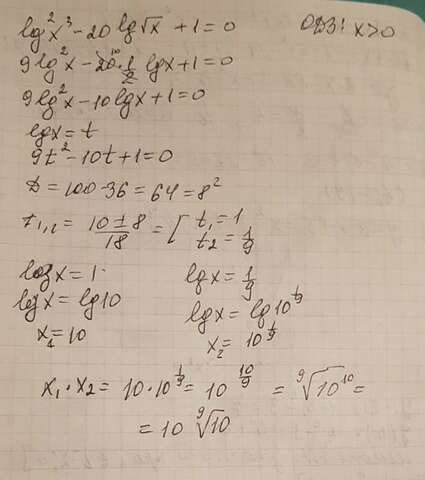 lg²x³ - 20 lg√x + 1 = 0 ОДЗ: x>0
9lg²x - 20·1/2 lgx + 1 = 0
9lg²x - 10lgx + 1 = 0
lgx = t
9t² - 10t + 1 = 0
D = 100 - 36 = 64 = 8²
t₁,₂ = (10 ± 8)/18 = [ t₁ = 1
t₂ = 1/9
lgx = 1 lgx = 1/9
lgx = lg10 lgx = lg10^(1/9)
x₁ = 10 x₂ = 10^(1/9)
x₁ · x₂ = 10 · 10^(1/9) = 10^(10/9) = ⁹√10¹⁰ =
= 10 ⁹√10